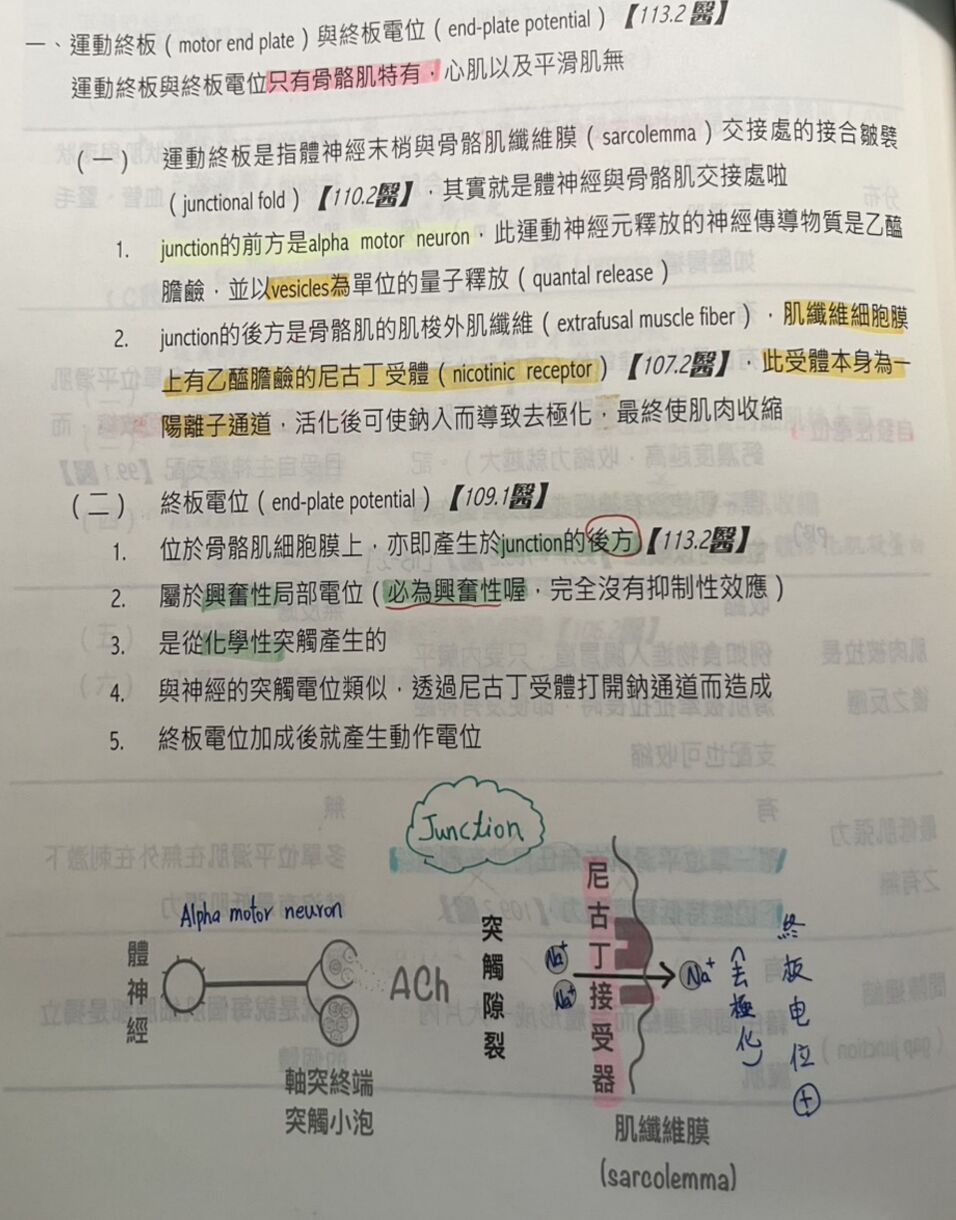 一、運動終板（motor end plate）與終板電位（end-plate potential）【113.2醫】
運動終板與終板電位只有骨骼肌特有，心肌以及平滑肌無
（一） 運動終板是指體神經末梢與骨骼肌纖維膜（sarcolemma）交接處的接合皺襞
（junctional fold）【110.2醫】，其實就是體神經與骨骼肌交接處啦
1. junction的前方是alpha motor neuron，此運動神經元釋放的神經傳導物質是乙醯
膽鹼，並以vesicles為單位的量子釋放（quantal release）
2. junction的後方是骨骼肌的肌梭外肌纖維（extrafusal muscle fiber），肌纖維細胞膜
上有乙醯膽鹼的尼古丁受體（nicotinic receptor）【107.2醫】，此受體本身為一
陽離子通道，活化後可使鈉入而導致去極化，最終使肌肉收縮
（二） 終板電位（end-plate potential）【109.1醫】
1. 位於骨骼肌細胞膜上，亦即產生於junction的後方【113.2醫】
2. 屬於興奮性局部電位（必為興奮性喔，完全沒有抑制性效應）
3. 是從化學性突觸產生的
4. 與神經的突觸電位類似，透過尼古丁受體打開鈉通道而造成
5. 終板電位加成後就產生動作電位
Junction
Alpha motor neuron
體神經
ACh
軸突終端
突觸小泡
突觸隙裂
尼古丁接受器
Na⁺
Na⁺
Na⁺
（去極化）
終板电位⊕
肌纖維膜
(sarcolemma)